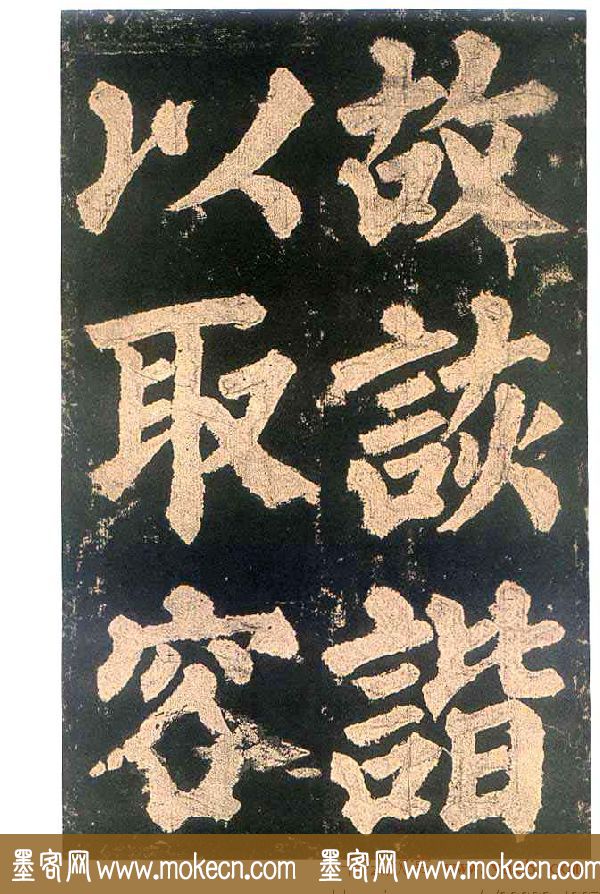 故詼諧
以取容
墨客网 www.mokecn.com 墨客网 www.mokecn.com